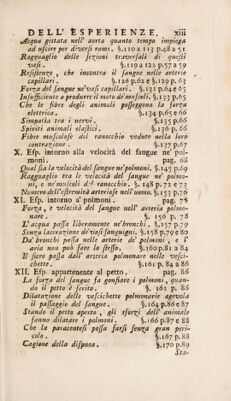 DELL' ESPERIENZE. xiii
Acqua gittata nell' aorta quanto tempo impiega
ad uscire per diversi rami. §.110 a 113 p.48 a 51
Ragguaglio delle sezioni trasversali di questi
vasi. §.119 a 122 p.57 a 59
Resistenze, che incontra il sangue nelle arterie
capillari. §.126 p.62 e §.129 p.63
Forza del sangue ne' vasi capillari. §.131 p.64 e 65
Insufficiente a produrre il moto de' muscoli. §.133 p.65
Che le fibre degli animali posseggono la forza
elettrica. §.134 p.65 e 66
Simpatia tra i nervi. §.135 p.66
Spiriti animali elastici. §.136 p.66
Fibre muscolose del ranocchio vedute nella loro
contrazione. §.137 p.67
X. Esp. intorno alla velocità del sangue ne' pol-
moni. pag. 68
Qual sia la velocità del sangue ne' polmoni. §.145 p.69
Ragguaglio tra le velocità del sangue ne' polmo-
ni, e ne' muscoli del ranocchio. §.148 p.72 e 73
Numero dell' estremità arteriose nell' uomo. §.153 p.76
XI. Esp. intorno a' polmoni. pag. 78
Forza, e velocità del sangue nell' arteria polmo-
nare. §. 156 p. 78
L' acqua passa liberamente ne' bronchi. §.157 p.79
Senza lacerazione de' vasi sanguigni. §.158 p.79 e 80
Da' bronchi passa nelle arterie de' polmoni, e l'
aria non può fare lo stesso. §.160 p.81 a 84
Il siero passa dall' arteria polmonare nelle vesci-
chette. §.161 p. 84 a 86
XII. Esp. appartenente al petto. pag. 86
La forza del sangue fa gonfiare i polmoni, quan-
do il petto è ferito. §. 162 p. 86
Dilatazione delle vescichette polmonarie agevola
il passaggio del sangue. §.164 p.86 e 87
Stando il petto aperto, gli sforzi dell' animale
fanno dilatare i polmoni. §.166 p.87 e 88
Che la paracentesi possa farsi senza gran peri-
colo. §.167 p.88
Cagione della dispnea. §.170 p.89
Sta-